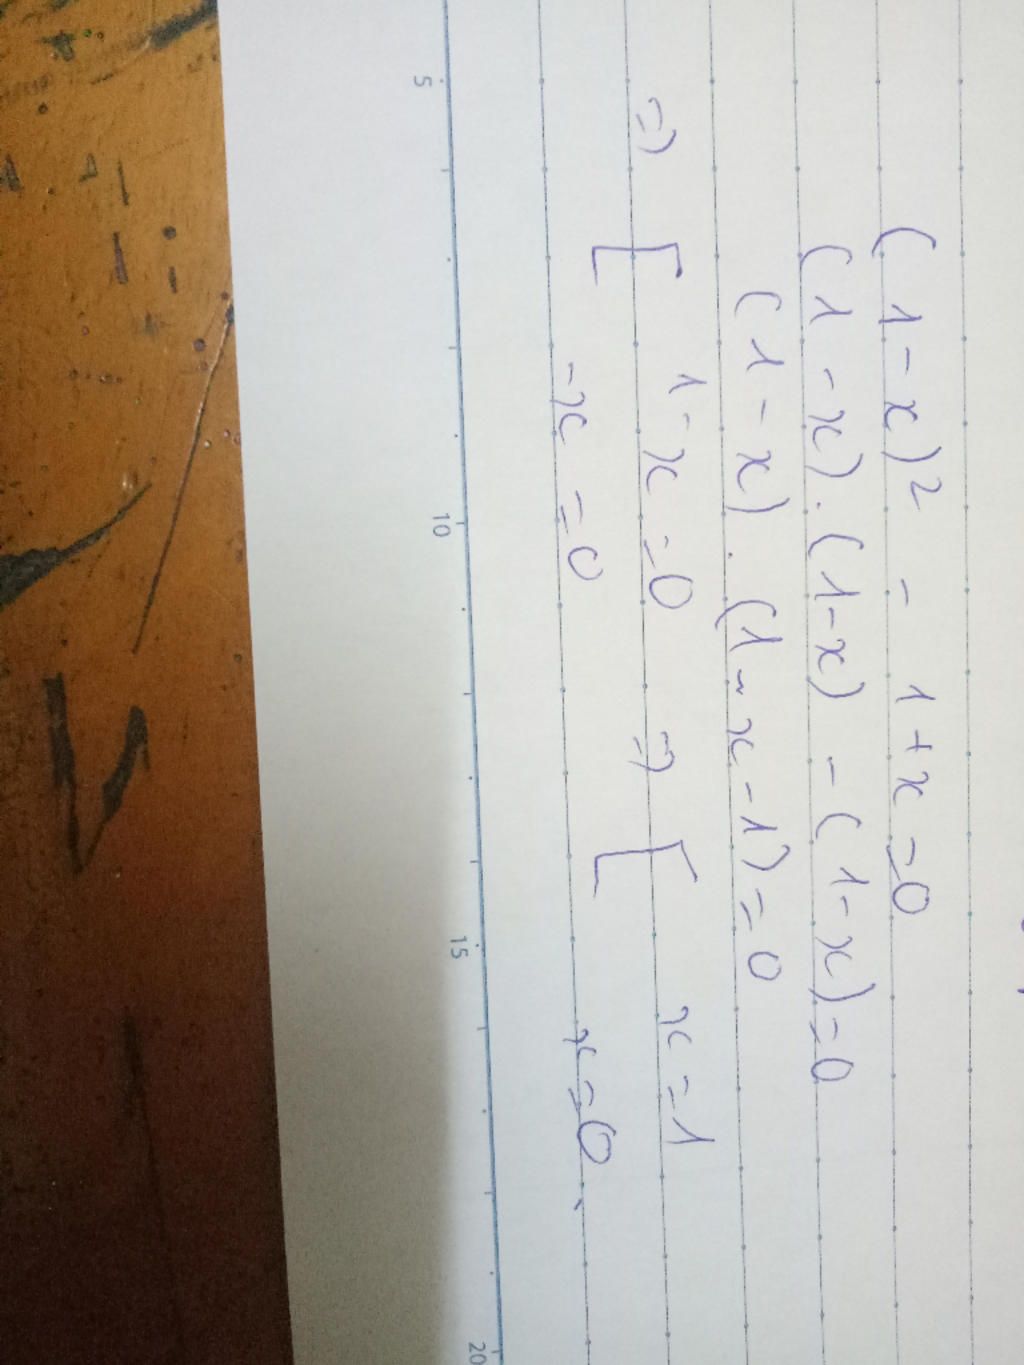 (1-x)² - 1+x=0
(1-x).(1-x) - (1-x)=0
(1-x).(1-x-1)=0
=> [ 1-x=0 => [ x=1
-x=0 x=0.
5 10 15 20